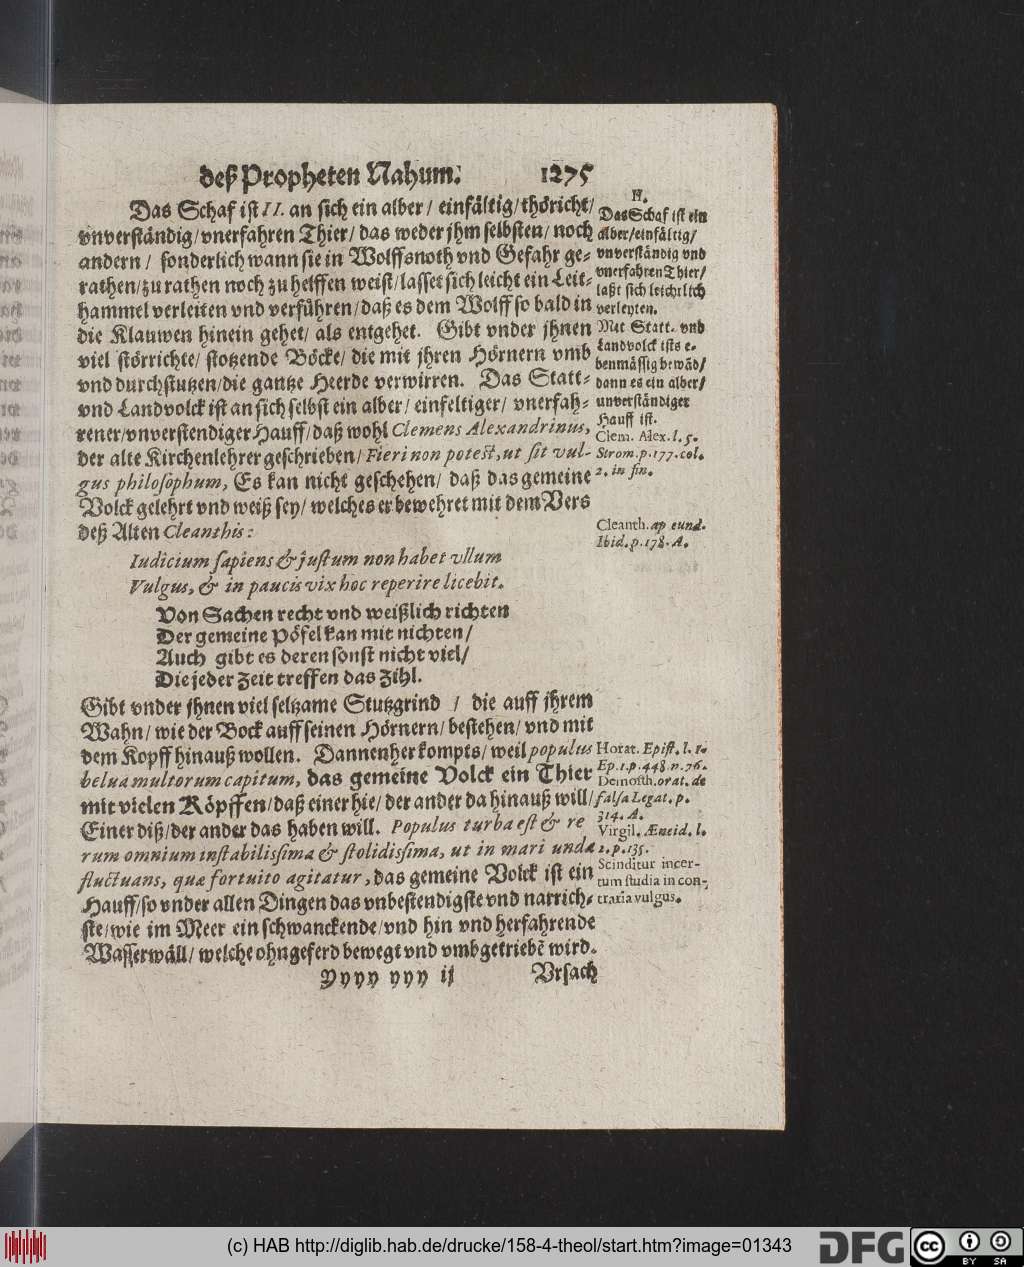 deß Propheten Nahum. 1275
Das Schaf ist II. an sich ein alber / einfältig / thöricht /
vnverständig / vnerfahren Thier / das weder jhm selbsten / noch
andern / sonderlich wann sie in Wolffsnoth vnd Gefahr ge-
rathen / zu rathen noch zu helffen weist / lasset sich leicht ein Leit-
hammel verleiten vnd verführen / daß es dem Wolff so bald in
die Klauwen hinein gehet / als entgehet. Gibt vnder jhnen
viel störrichte / stotzende Böcke / die mit jhren Hörnern vmb
vnd durchstutzen / die gantze Heerde verwirren. Das Statt-
vnd Landvolck ist an sich selbst ein alber / einfeltiger / vnerfah-
rener / vnverstendiger Hauff / daß wohl Clemens Alexandrinus,
der alte Kirchenlehrer geschrieben / Fieri non potest, ut sit vul-
gus philosophum, Es kan nicht geschehen / daß das gemeine
Volck gelehrt vnd weiß sey / welches er bewehret mit dem Vers
deß Alten Cleanthis:
Iudicium sapiens & justum non habet vllum
Vulgus, & in paucis vix hoc reperire licebit.
Von Sachen recht vnd weißlich richten
Der gemeine Pöfel kan mit nichten /
Auch gibt es deren sonst nicht viel /
Die jeder Zeit treffen das Zihl.
Gibt vnder jhnen viel seltzame Stutzgrind / die auff jhrem
Wahn / wie der Bock auff seinen Hörnern / bestehen / vnd mit
dem Kopff hinauß wollen. Dannenher kompts / weil populus
belua multorum capitum, das gemeine Volck ein Thier
mit vielen Köpffen / daß einer hie / der ander da hinauß will /
Einer diß / der ander das haben will. Populus turba est & re
rum omnium instabilissima & stolidissima, ut in mari undæ
fluctuans, quæ fortuito agitatur, das gemeine Volck ist ein
Hauff / so vnder allen Dingen das vnbestendigste vnd narrich-
ste / wie im Meer ein schwanckende / vnd hin vnd herfahrende
Wasserwäll / welche ohngeferd bewegt vnd vmbgetriebẽ wird.
Yyyy yyy ij Vrsach
II.
Das Schaf ist ein
alber / einfältig /
vnverständig vnd
vnerfahren Thier /
laßt sich leichtlich
verleyten.
Mit Statt- vnd
Landvolck ists e-
benmässig bewãd /
dann es ein alber /
unverständiger
Hauff ist.
Clem. Alex. l. 5.
Strom. p. 177. col.
2. in fin.
Cleanth. ap eund.
Ibid. p. 178. A.
Horat. Epist. l. 1.
Ep. 1. p. 448. n. 76.
Demosth. orat. de
falsa Legat. p.
314. A.
Virgil. Æneid. l.
2. p. 135.
Scinditur incer-
tum studia in con-
traria vulgus.
(c) HAB http://diglib.hab.de/drucke/158-4-theol/start.htm?image=01343
DFG
cc BY SA